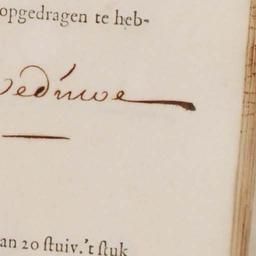 opgedragen te heb-
Weduwe
an 20 stuiv. 't stuk